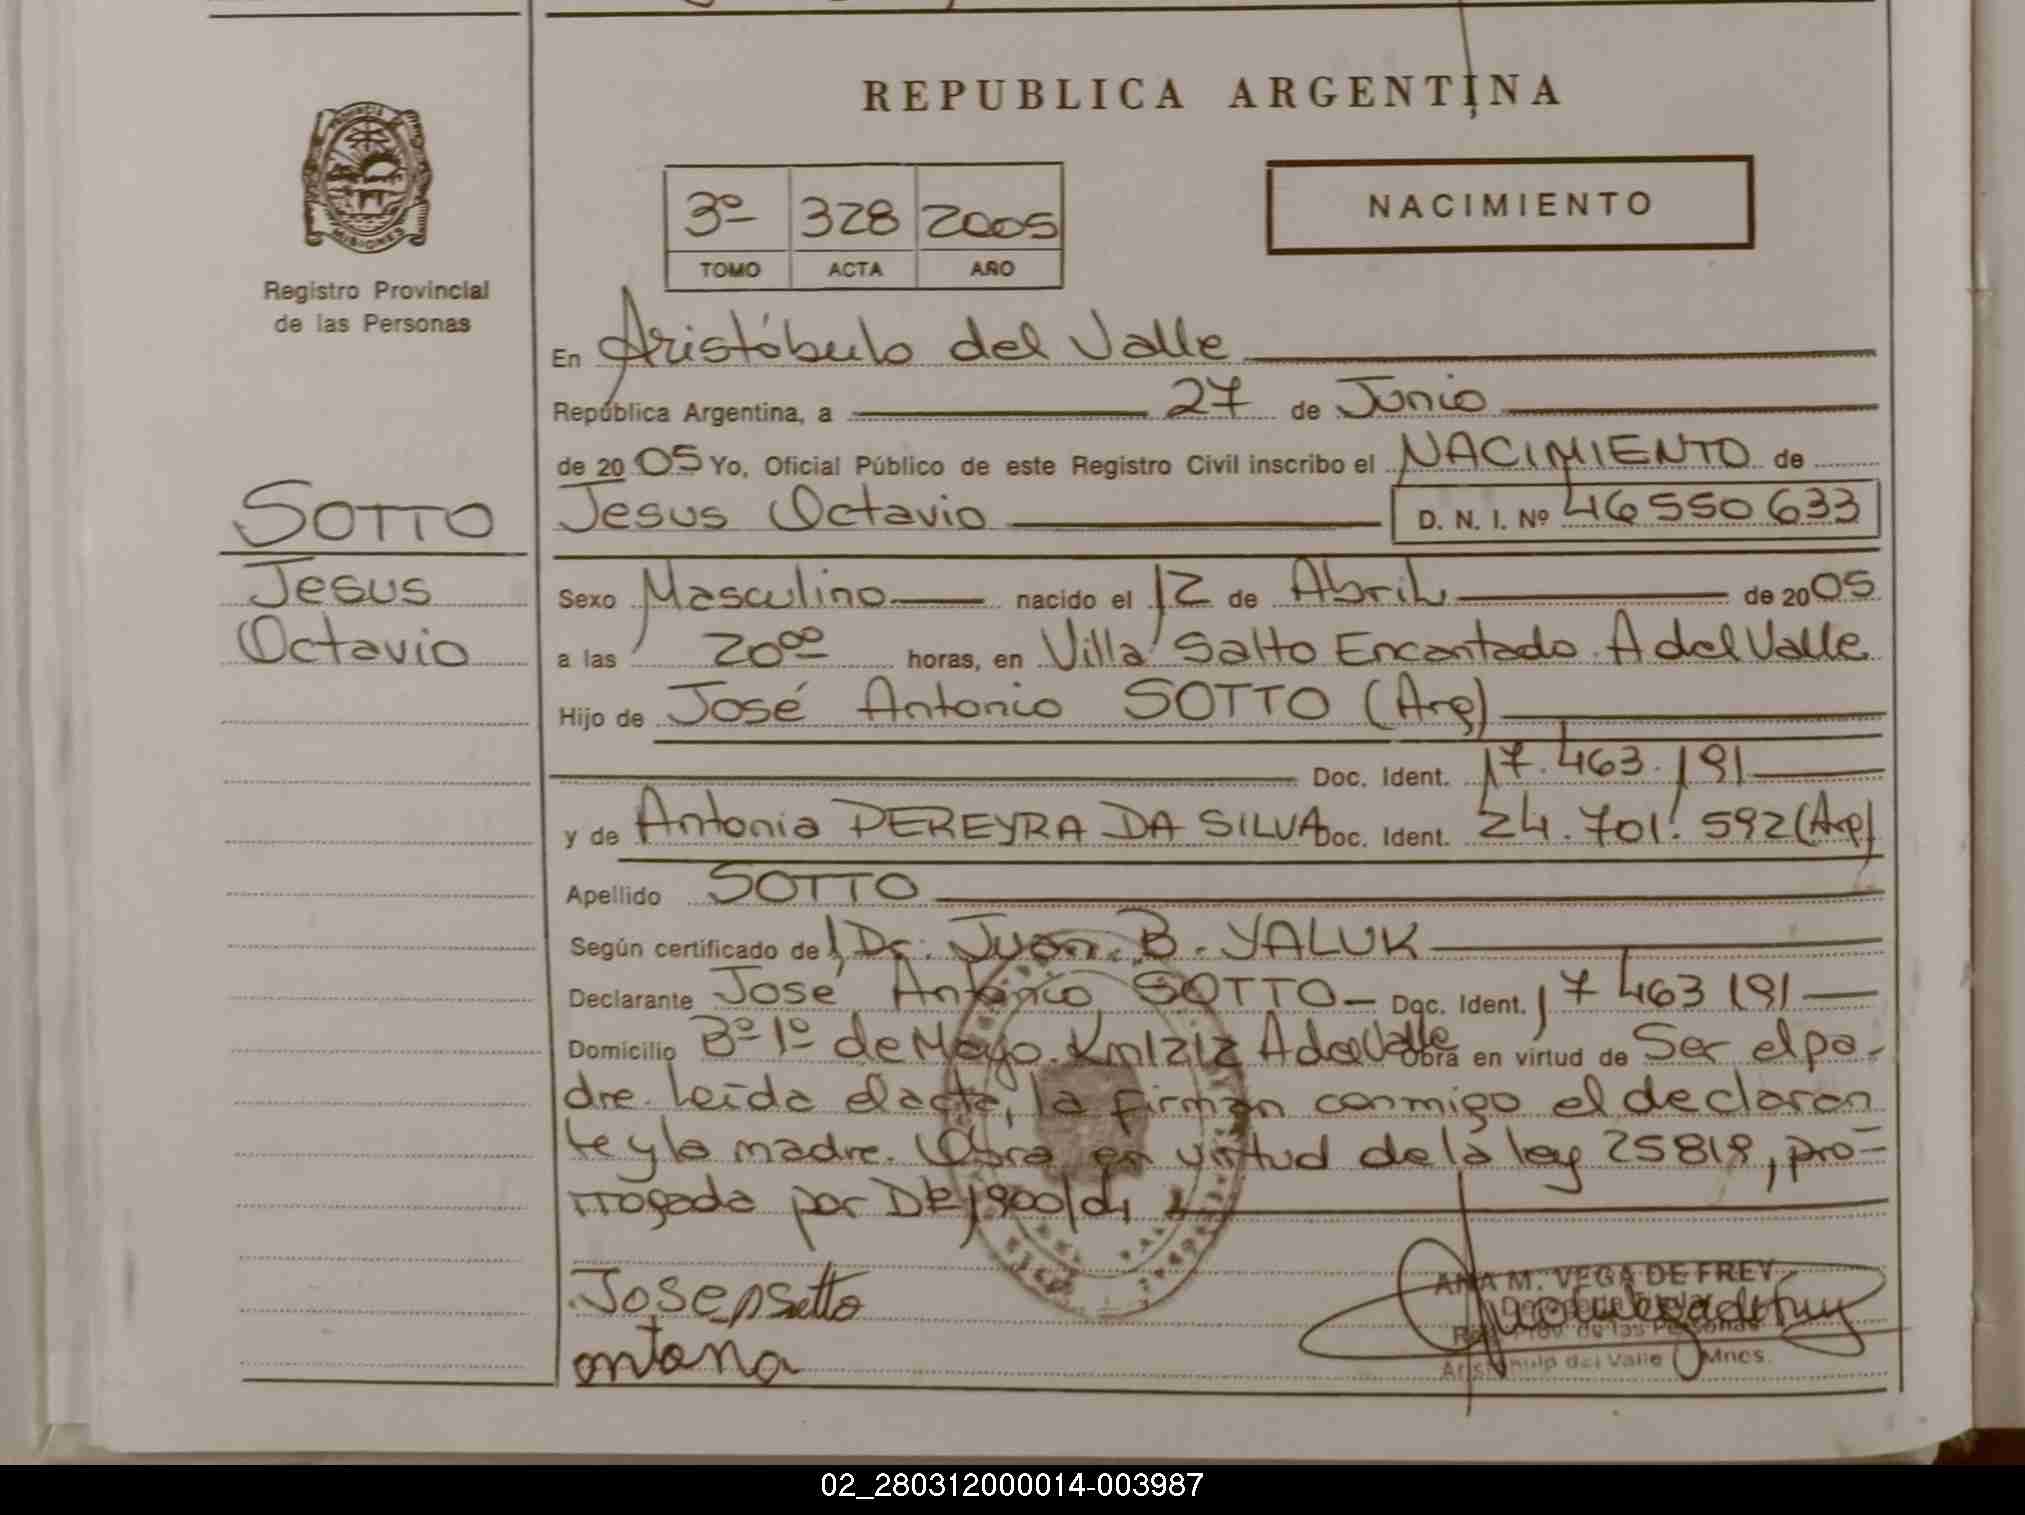 REPUBLICA ARGENTINA
PROVINCIA
MISIONES
Registro Provincial
de las Personas
3º 328 2005
TOMO ACTA AÑO
NACIMIENTO
En Aristóbulo del Valle
República Argentina, a 27 de Junio
de 20 05 Yo, Oficial Público de este Registro Civil inscribo el NACIMIENTO de
Jesus Octavio D. N. I. Nº 46 550 633
SOTTO
Jesus
Octavio
Sexo Masculino nacido el 12 de Abril de 20 05
a las 20ºº horas, en Villa Salto Encantado A del Valle
Hijo de José Antonio SOTTO (Arg)
Doc. Ident. 17.463.191
y de Antonia PEREYRA DA SILVA Doc. Ident. 24.701.592 (Arg)
Apellido SOTTO
Según certificado del Dr. Juan B. YALUK
Declarante José Antonio SOTTO Doc. Ident. 17 463 191
Domicilio Bº 1º de Mayo. Km 1212 A del Valle Obra en virtud de Ser el pa-
dre. Leída el acta, la firman conmigo el declaran
te y la madre. Obra en virtud de la ley 25819, pro-
rrogada por 1900/04
Jose A Sotto
antona
ANA M. VEGA DE FREY
Reg. Prov. de las Personas
Aristóbulo del Valle Mnes.
02_280312000014-003987